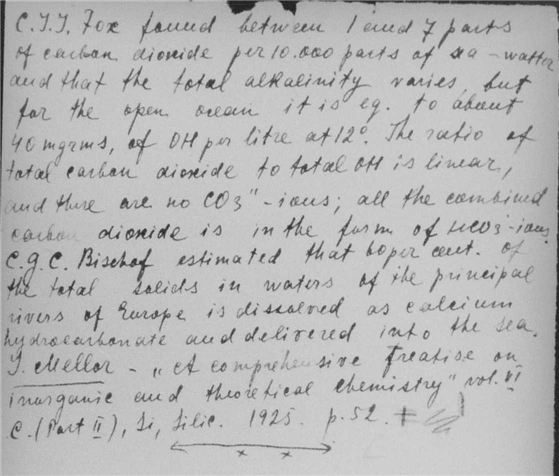 C.J.J. Fox found between 1 and 7 parts
of carbon dioxide per 10.000 parts of sea-watter
and that the total alkalinity varies, but
for the open ocean it is eg. to about
40 mgrms, of OH per litre at 12°. The ratio of
total carbon dioxide to total OH is linear,
and there are no CO3"-ions; all the combined
carbon dioxide is in the form of HCO3-ions.
C.G.C. Bischof estimated that 60 per cent. of
the total solids in waters of the principal
rivers of Europe is dissolved as calcium
hydrocarbonate and delivered into the sea.
J. Mellor - „A comprehensive treatise on
inorganic and theoretical chemistry" vol. VI
C. (Part II), Si, Silic. 1925. p. 52. +
x x